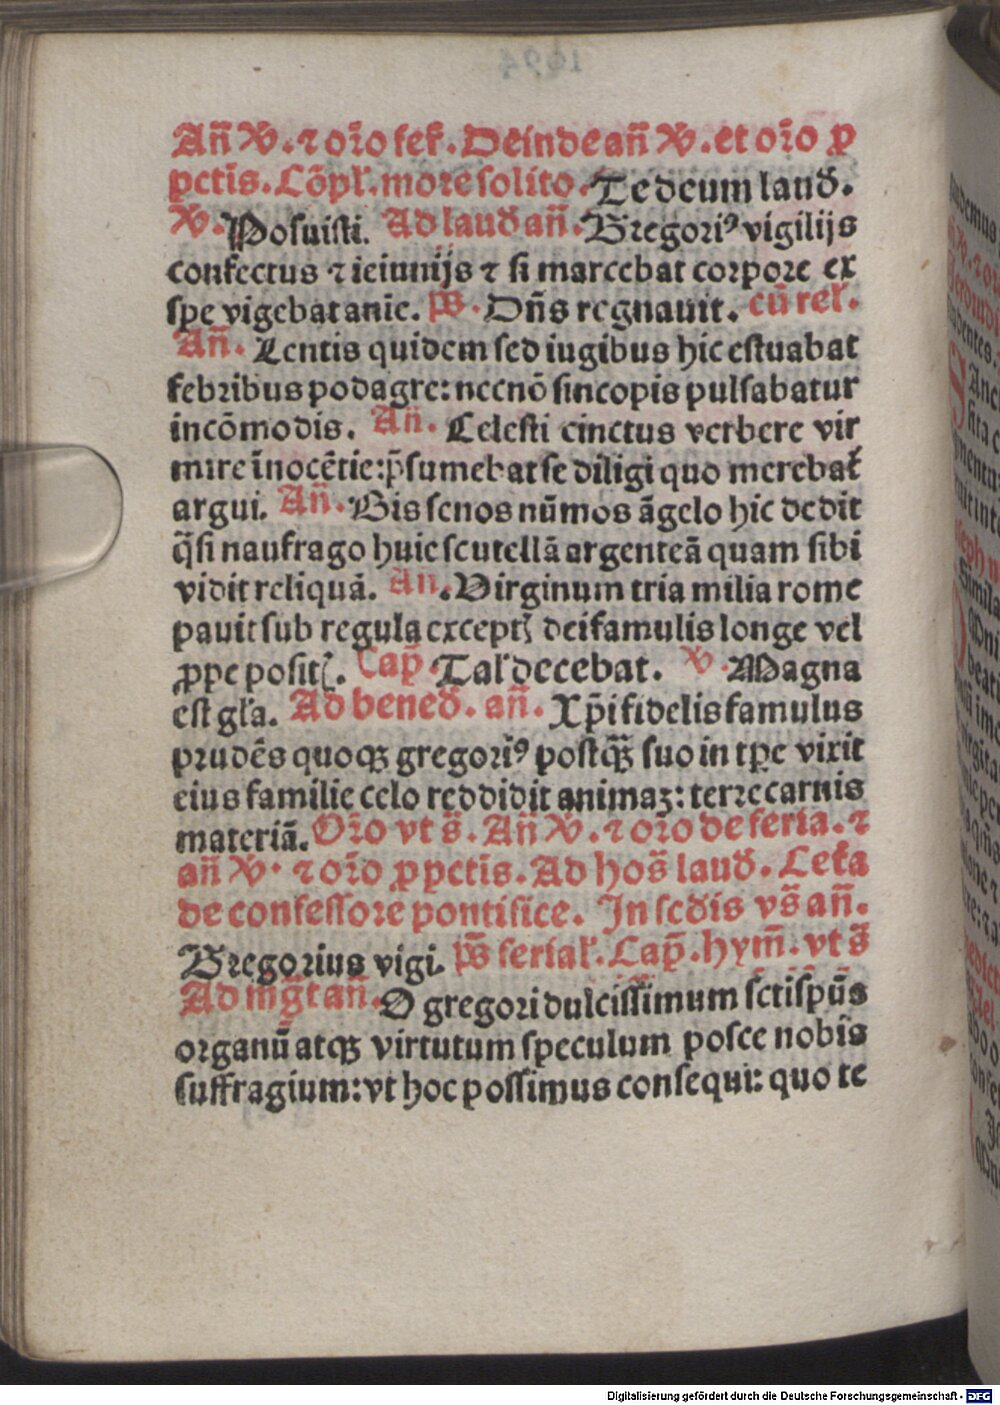 Añ ꝟ. ⁊ oro̅ feř. Deinde añ ꝟ. et oro̅ ꝑ
pctīs. Cōpł. more solito. Te deum laud̛.
ꝟ. Posuisti. Ad laud̛ añ. Gregoriꝰ vigilijs
confectus ⁊ ieiunijs ⁊ si marcebat corpore ex
spe vigebat anīe. ps̄. Dn̄s regnauit. cū rel̛.
Añ. Lentis quidem sed iugibus hic estuabat
febribus podagre: necnō sincopis pulsabatur
incōmodis. Añ. Celesti cinctus verbere vir
mire īnocētie: p̄sumebat se diligi quo merebať
argui. Añ. Bis senos nūmos āgelo hic dedit
q̄si naufrago huic scutellā argenteā quam sibi
vidit reliquā. An. Virginum tria milia rome
pauit sub regula exceptꝭ dei famulis longe vel
ꝓpe positꝭ. Cap̄. Tal̛ decebat. ꝟ. Magna
est gl̛a. Ad bened̛. añ. Xp̄i fidelis famulus
prudēs quoqꝫ gregoriꝰ postq̄ꝫ suo in tꝑe vixit
eius familie celo reddidit animaꝫ: terre carnis
materiā. Oro̅ vt s̄. Añ ꝟ. ⁊ oro̅ de feria. ⁊
añ ꝟ. ⁊ oro̅ ꝑ pctīs. Ad hos̄ laud̛. Lečta
de confessore pontifice. In scd̛is vs̄ añ.
Gregorius vigi. ps̄ ferial̛. Cap̄. hym̄. vt s̄
Ad mḡt añ. O gregori dulcissimum scti spūs
organū atqꝫ virtutum speculum posce nobis
suffragium: vt hoc possimus consequi: quo te
Digitalisierung gefördert durch die Deutsche Forschungsgemeinschaft - DFG